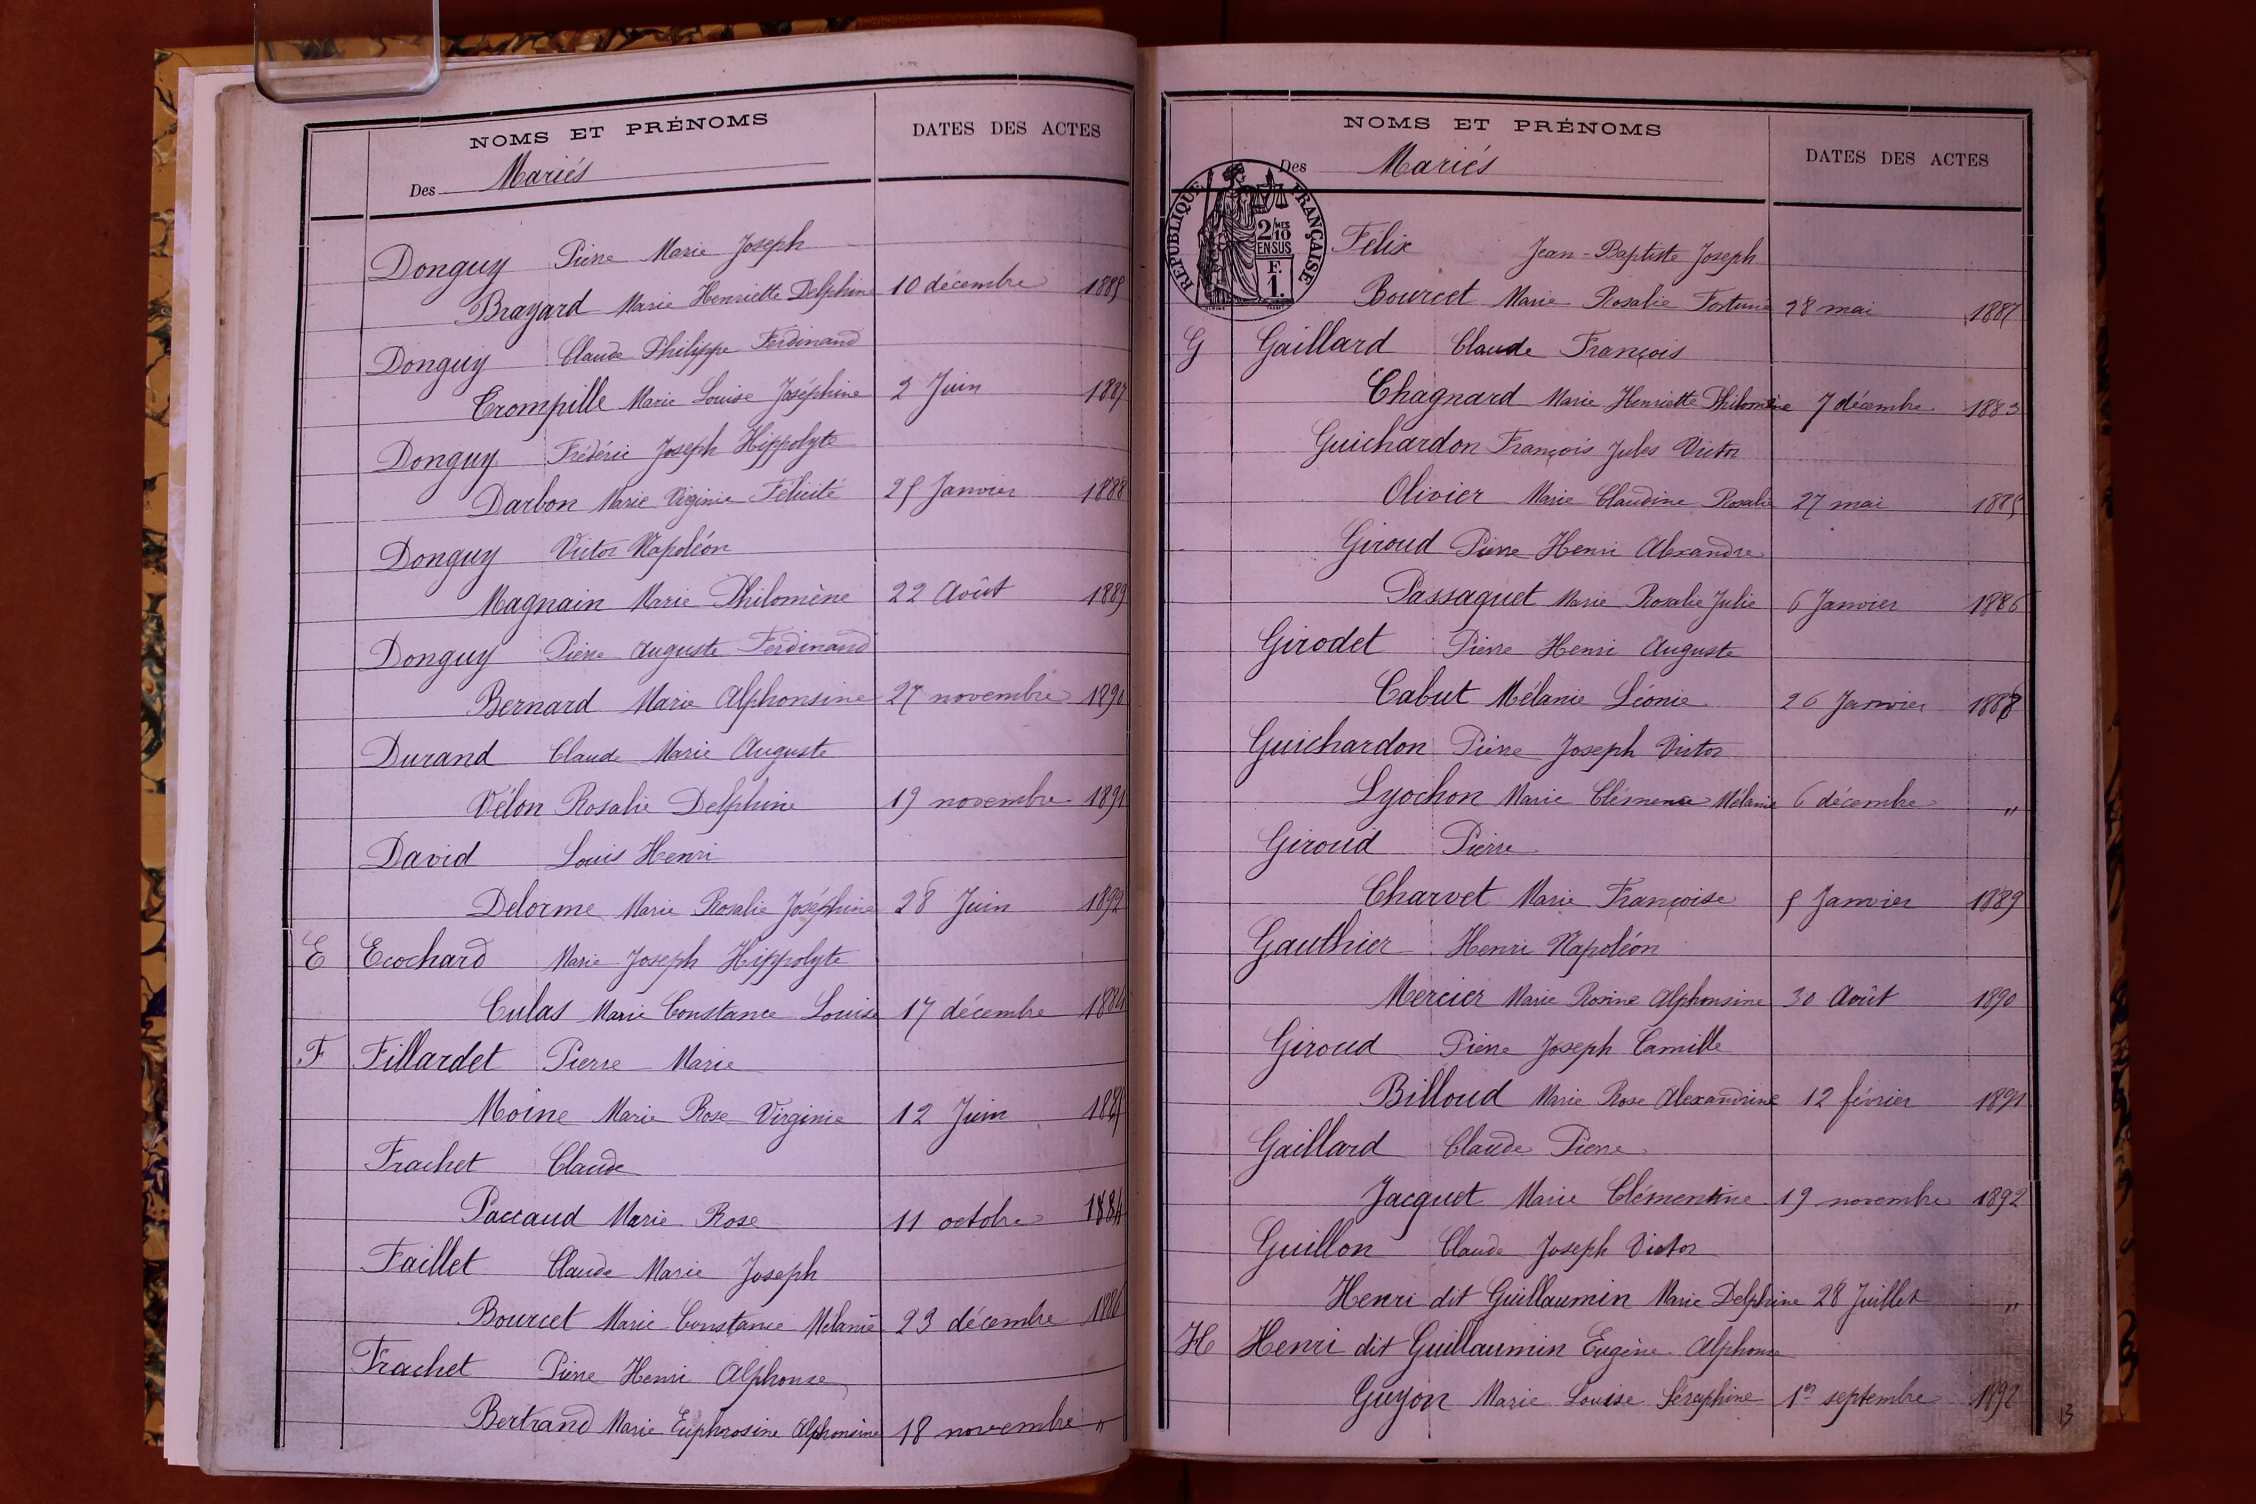 NOMS ET PRÉNOMS
DATES DES ACTES
Des Mariés
Donguy Pierre Marie Joseph
Brayard Marie Henriette Delphine 10 décembre 1885
Donguy Claude Philippe Ferdinand
Trompille Marie Louise Joséphine 2 Juin 1887
Donguy Frédéric Joseph Hippolyte
Darbon Marie Virginie Félicité 25 Janvier 1888
Donguy Victor Napoléon
Magnain Marie Philomène 22 Août 1889
Donguy Pierre Auguste Ferdinand
Bernard Marie Alphonsine 27 novembre
Durand Claude Marie Auguste
Vélon Rosalie Delphine 19 novembre 1891
David Louis Henri
Delorme Marie Rosalie Joséphine 28 Juin 1892
E Ecochard Marie Joseph Hippolyte
Culas Marie Constance Louise 17 décembre 1884
F Fillardet Pierre Marie
Moine Marie Rose Virginie 12 Juin
Frachet Claude
Paccaud Marie Rose 11 octobre 1884
Faillet Claude Marie Joseph
Bourcet Marie Constance Mélanie 23 décembre 1886
Frachet Pierre Henri Alphonse
Bertrand Marie Euphrosine Alphonsine 18 novembre "
NOMS ET PRÉNOMS
DATES DES ACTES
Des Mariés
RÉPUBLIQUE FRANÇAISE
2/10MES
EN SUS
F.
1.
Félix Jean-Baptiste Joseph
Bourcet Marie Rosalie Fortunée 28 mai 1887
G Gaillard Claude François
Chagnard Marie Henriette Philomène 7 décembre 1883
Guichardon François Jules Victor
Olivier Marie Claudine Rosalie 27 mai 1885
Giroud Pierre Henri Alexandre
Passaquet Marie Rosalie Julie 6 Janvier 1886
Girodet Pierre Henri Auguste
Cabut Mélanie Léonie 26 Janvier 1888
Guichardon Pierre Joseph Victor
Lyochon Marie Clémence Mélanie 6 décembre "
Giroud Pierre
Charvet Marie Françoise 5 Janvier 1889
Gauthier Henri Napoléon
Mercier Marie Rosine Alphonsine 30 Août 1890
Giroud Pierre Joseph Camille
Billoud Marie Rose Alexandrine 12 février 1891
Gaillard Claude Pierre
Jacquet Marie Clémentine 19 novembre 1892
Guillon Claude Joseph Victor
Henri dit Guillaumin Marie Delphine 28 Juillet "
H Henri dit Guillaumin Eugène Alphonse
Guyon Marie Louise Séraphine 1er septembre 1892
13